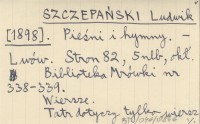 SZCZEPAŃSKI Ludwik
[1898]. Pieśni i hymny. –
Lwów. Stron 82, 5 nlb, okł.
Biblioteka Mrówki nr
338-339.
Wiersze.
Tatr dotyczy tylko wiersz